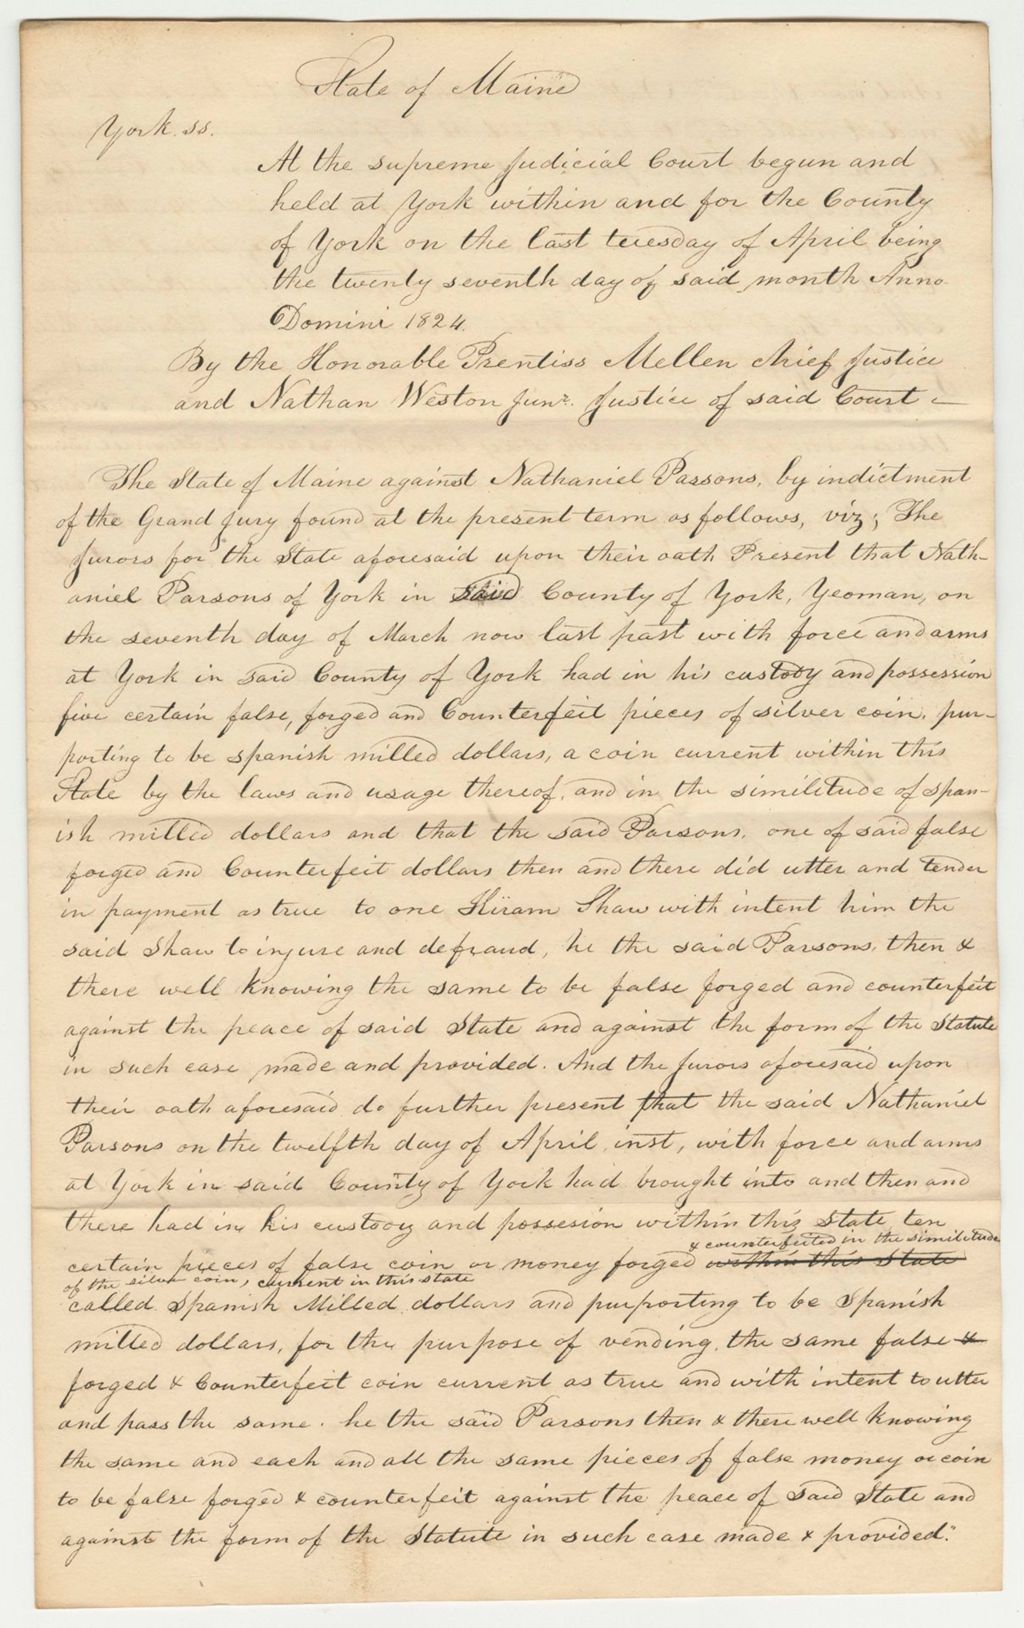 State of Maine
York. ss.
At the supreme Judicial Court begun and
held at York within and for the County
of York on the last tuesday of April being
the twenty seventh day of said month Anno
Domini 1824.
By the Honorable Prentiss Mellen Chief Justice
and Nathan Weston Junr. Justice of said Court –
The State of Maine against Nathaniel Parsons, by indictment
of the Grand Jury found at the present term as follows, viz; The
Jurors for the State aforesaid upon their oath Present that Nath-
aniel Parsons of York in said County of York, Yeoman, on
the seventh day of March now last past with force and arms
at York in said County of York had in his custody and possession
five certain false, forged and Counterfeit pieces of silver coin, pur-
porting to be spanish milled dollars, a coin current within this
State by the laws and usage thereof, and in the similitude of span-
ish milled dollars and that the said Parsons, one of said false
forged and Counterfeit dollars then and there did utter and tender
in payment as true to one Hiram Shaw with intent him the
said Shaw to injure and defraud, he the said Parsons, then &
there well knowing the same to be false forged and counterfeit
against the peace of said State and against the form of the Statute
in such case made and provided. And the Jurors aforesaid upon
their oath aforesaid do further present that the said Nathaniel
Parsons on the twelfth day of April, inst, with force and arms
at York in said County of York had brought into and then and
there had in his custody and possesion within this State ten
& counterfeited in the similitude
certain pieces of false coin or money forged within this State
of the silver coin, current in this state
called Spanish Milled dollars and purporting to be Spanish
milled dollars, for the purpose of vending the same false &
forged & Counterfeit coin current as true and with intent to utter
and pass the same. he the said Parsons then & there well knowing
the same and each and all the same pieces of false money or coin
to be false forged & counterfeit against the peace of said State and
against the form of the Statute in such case made & provided."